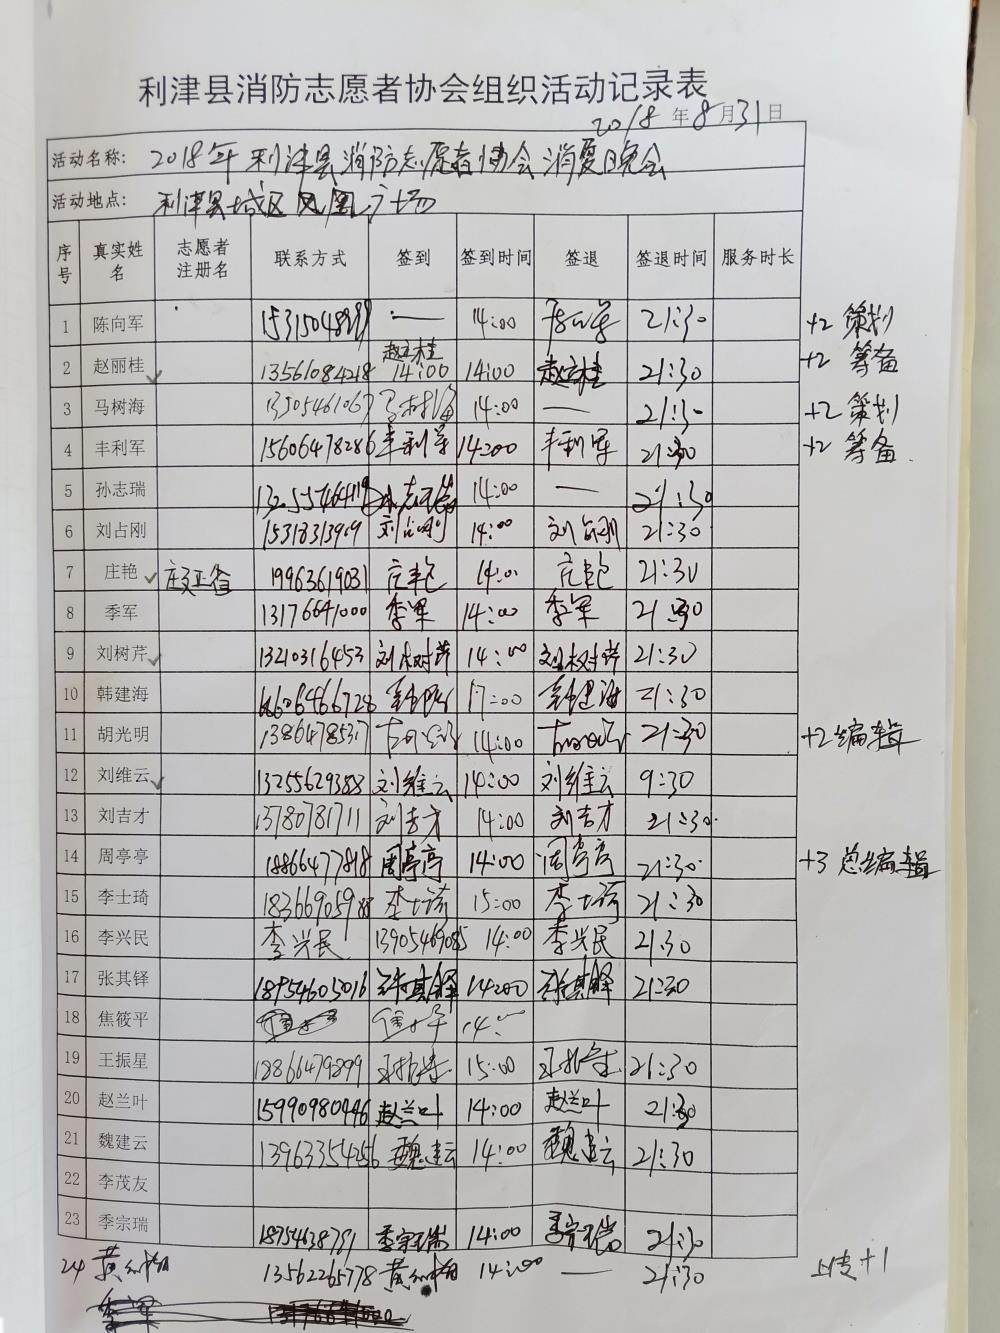 利津县消防志愿者协会组织活动记录表
2018年8月31日
活动名称: 2018年利津县消防志愿者协会消夏晚会
活动地点: 利津县城区凤凰广场
序号 真实姓名 志愿者注册名 联系方式 签到 签到时间 签退 签退时间 服务时长
1 陈向军 — 14:00 21:30 +2 策划
2 赵丽桂 13561084218 赵立桂 14:00 14:00 赵立桂 21:30 +2 筹备
3 马树海 14:00 — 21:30 +2 策划
4 丰利军 15606478286 丰利军 14:00 丰利军 21:30 +2 筹备
5 孙志瑞 孙志瑞 14:00 — 21:30
6 刘占刚 15318313909 刘占刚 14:00 刘占刚 21:30
7 庄艳 19963619031 庄艳 14:00 庄艳 21:30
8 季军 13176641000 季军 14:00 季军 21:30
9 刘树芹 13210316453 刘树芹 14:00 刘树芹 21:30
10 韩建海 17:00 韩建海 21:30
11 胡光明 13864785317 14:00 21:30 +2编辑
12 刘维云 13255629388 刘维云 14:00 刘维云 9:30
13 刘吉才 13780781711 刘吉才 14:00 刘吉才 21:30
14 周亭亭 18866477818 周亭亭 14:00 周亭亭 21:30 +3 总编辑
15 李士琦 18366905988 李士琦 15:00 李士琦 21:30
16 李兴民 李兴民 13905469085 14:00 李兴民 21:30
17 张其铎 18954605016 张其铎 14:00 张其铎 21:30
18 焦筱平 14:00
19 王振星 18866479899 王振星 15:00 王振星 21:30
20 赵兰叶 15990980446 赵兰叶 14:00 赵兰叶 21:30
21 魏建云 13963354256 魏建云 14:00 魏建云 21:30
22 李茂友
23 季宗瑞 18754638791 季宗瑞 14:00 季宗瑞 21:30
24 13562265778 14:00 — 21:30 +1